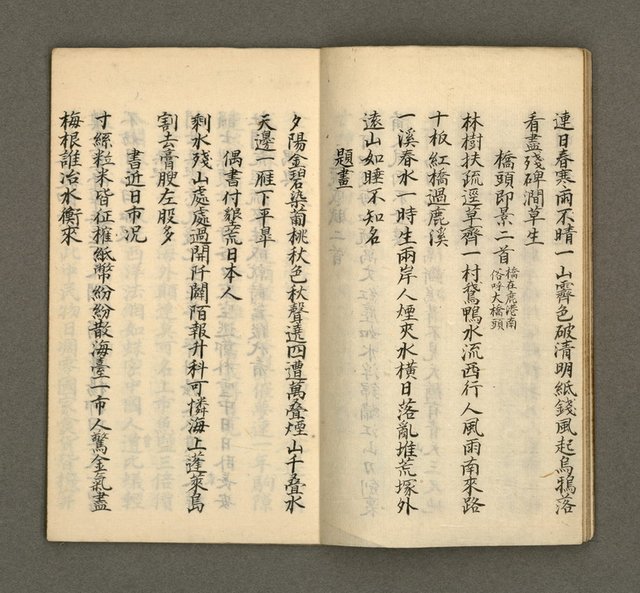 連日春寒雨不晴一山霽色破清明紙錢風起烏鴉落
看盡殘碑澗草生
橋頭即景二首 橋在鹿港南俗呼大橋頭
林樹扶疏逕草齊一村鵞鴨水流西行人風雨南來路
十板紅橋過鹿溪
一溪春水一時生兩岸人煙夾水橫日落亂堆荒塚外
遠山如睡不知名
題畫
夕陽金碧染匍桃秋色秋聲遶四遭萬叠煙山千叠水
天邊一雁下平皐
偶書付墾荒日本人
剩水殘山處處過開阡闢陌報升科可憐海上蓬萊島
割去膏腴左股多
書近日市况
寸絲粒米皆征榷紙幣紛紛散海臺一市人驚金氣盡
梅根誰冶水衡來